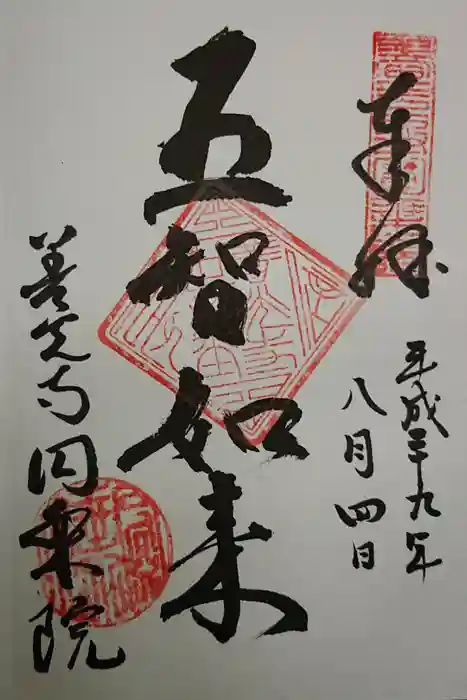 奉拝
平成二十九年
八月四日
五智如来
善光寺円乗院